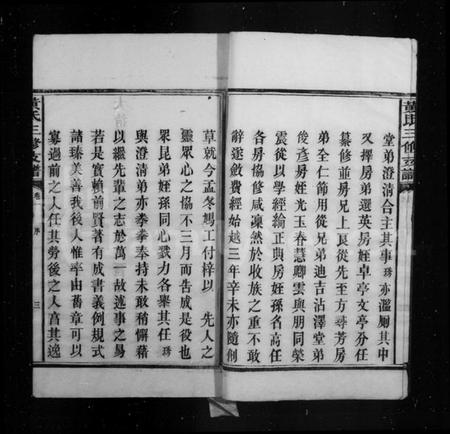 黃氏三修支譜
堂弟澄清合主其事琇亦濫厠其中
又擇房弟選英房姪卓亭文亭分任
纂修並房兄上
房弟全仁節用從兄弟迪吉沽澤堂弟
俊彥房姪光玉春慧卿雲與朋同榮
震從以學經綸正與房姪孫名高任
各房協修咸凜然於收族之重不敢
辭遂斂費經始越三年辛未亦隨創
草就今孟冬鳩工付梓以 先人之
靈眾心之協不三月而告成是役也
眾昆弟姪孫同心戮力各舉其任琇
與澄清弟亦拳拳奉持未敢稍懈藉
以繼先輩之志於萬一故述事之易
若是實賴前賢著有成書義例規式
諸臻美善我後人惟率由舊章可以
寡過前之人任其勞後之人享其逸
黃氏三修支譜 卷 序 三